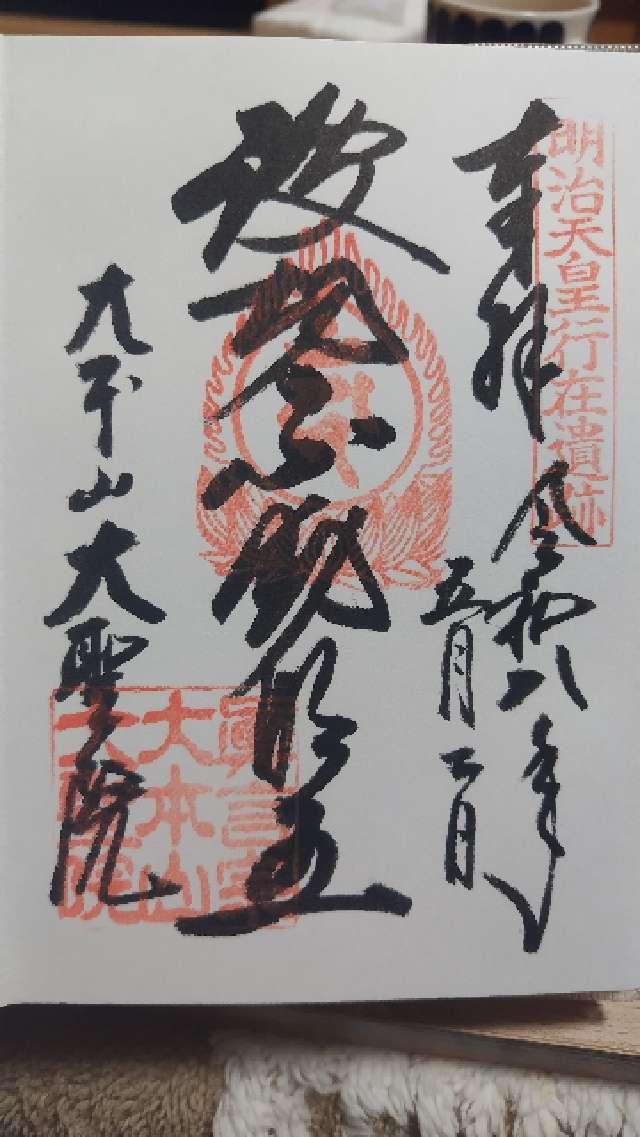 明治天皇行在遺跡
奉拝 令和八年
五月二日
波切不動明王
大本山大聖院
眞言宗
大本山
大聖院